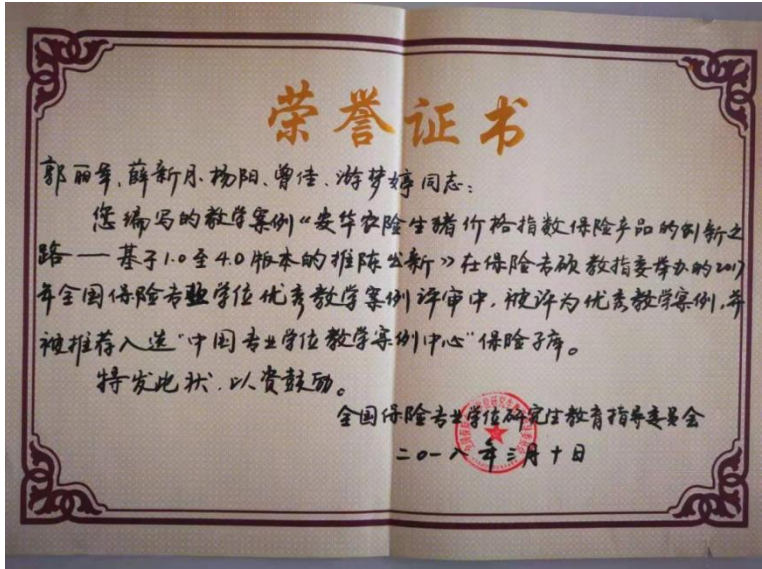 荣誉证书
郭丽华、薛新月、杨阳、曾佳、游梦婷同志：
您编写的教学案例《安华农险生猪价格指数保险产品的创新之
路——基于1.0至4.0版本的推陈出新》在保险专硕教指委举办的2017
年全国保险专业学位优秀教学案例评审中，被评为优秀教学案例，并
被推荐入选“中国专业学位教学案例中心”保险子库。
特发此状，以资鼓励。
全国保险专业学位研究生教育指导委员会
二〇一八年三月十日